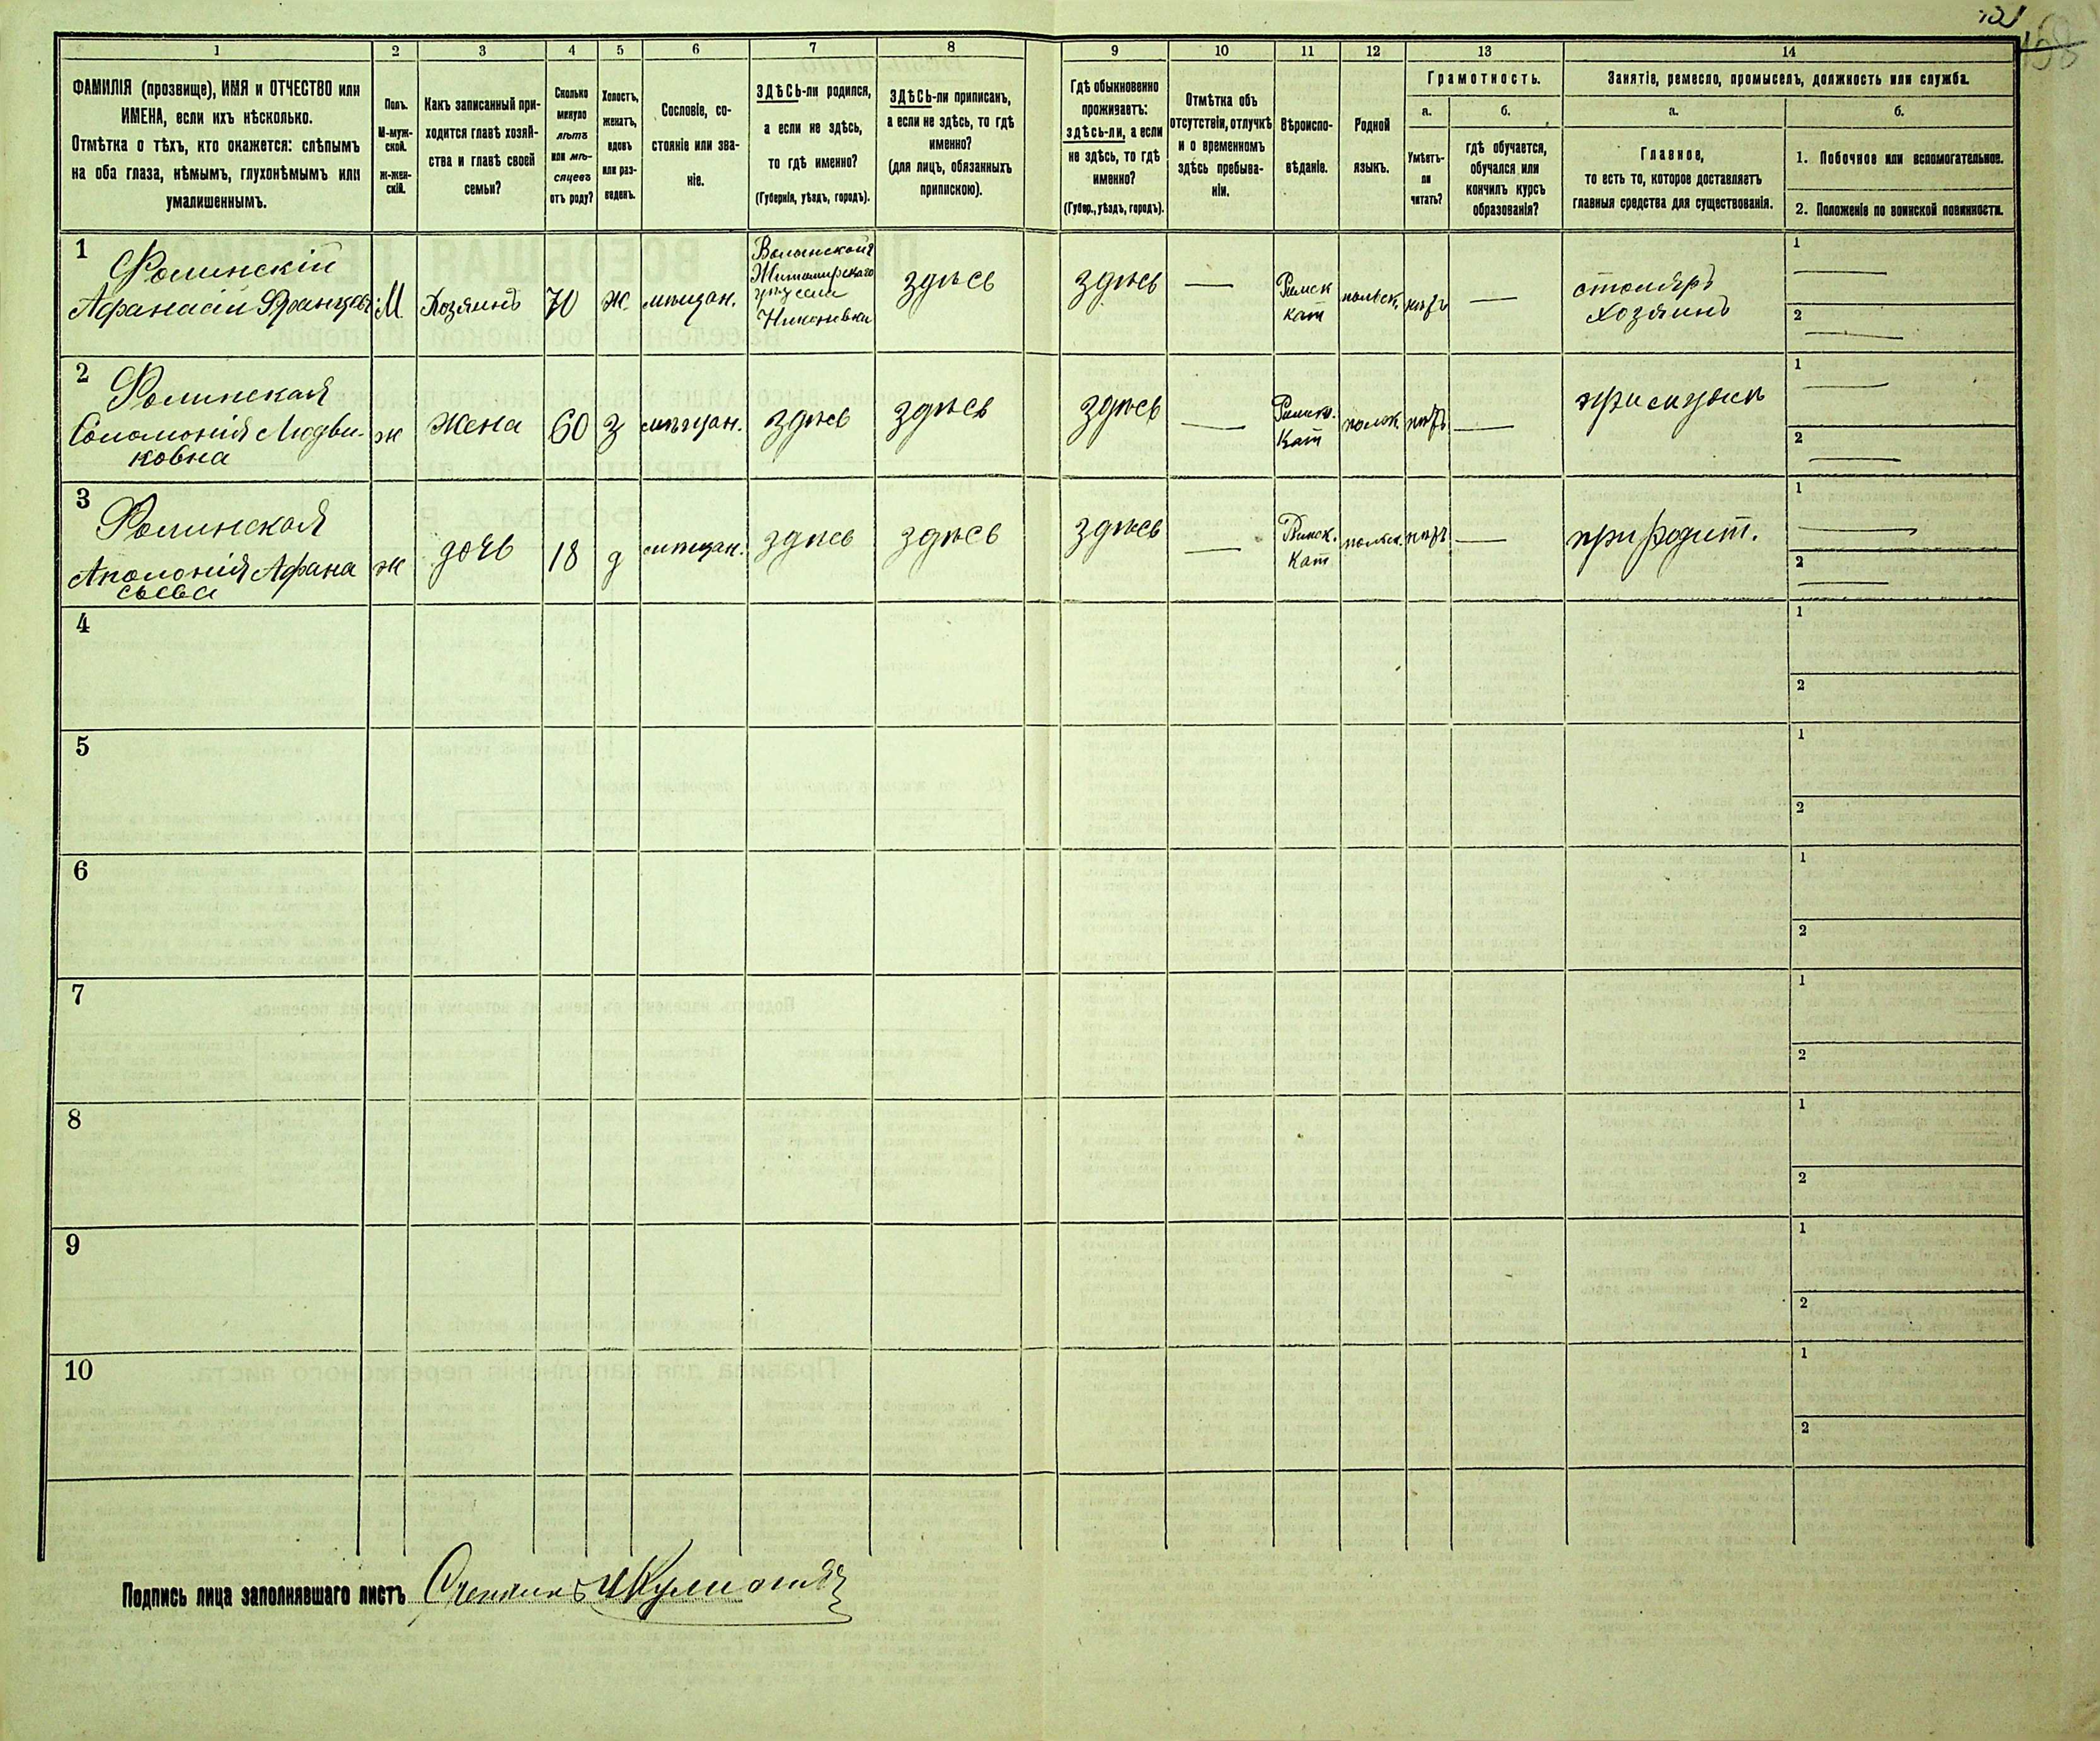 151
158
1 2 3 4 5 6 7 8 9 10 11 12 13 14
ФАМИЛІЯ (прозвище), ИМЯ и ОТЧЕСТВО или
ИМЕНА, если ихъ нѣсколько.
Отмѣтка о тѣхъ, кто окажется: слѣпымъ
на оба глаза, нѣмымъ, глухонѣмымъ или
умалишеннымъ.
Полъ.
М-муж-
ской.
ж-жен-
скій.
Какъ записанный при-
ходится главѣ хозяй-
ства и главѣ своей
семьи?
Сколько
минуло
лѣтъ
или мѣ-
сяцевъ
отъ роду?
Холостъ,
женатъ,
вдовъ
или раз-
веденъ.
Сословіе, со-
стояніе или зва-
ніе.
ЗДѢСЬ-ли родился,
а если не здѣсь,
то гдѣ именно?
(Губернія, уѣздъ, городъ).
ЗДѢСЬ-ли приписанъ,
а если не здѣсь, то гдѣ
именно?
(для лицъ, обязанныхъ
припискою).
Гдѣ обыкновенно
проживаетъ:
здѣсь-ли, а если
не здѣсь, то гдѣ
именно?
(Губер., уѣздъ, городъ).
Отмѣтка объ
отсутствіи, отлучкѣ
и о временномъ
здѣсь пребыва-
ніи.
Вѣроиспо-
вѣданіе.
Родной
языкъ.
Грамотность.
а.
Умѣетъ-
ли
читать?
б.
гдѣ обучается,
обучался или
кончилъ курсъ
образованія?
Занятіе, ремесло, промыселъ, должность или служба.
а.
Главное,
то есть то, которое доставляетъ
главныя средства для существованія.
б.
1. Побочное или вспомогательное.
2. Положеніе по воинской повинности.
1
Фолинскій
Афанасій Францевъ
М
Хозяинъ
70
ж.
мѣщан.
Волынской
Житомирскаго
Никоновки
здѣсь
здѣсь
—
Римск
кат
польск.
нѣтъ
—
столяръ
хозяинъ
1
—
2
—
2
Фолинская
Соломонія Людви-
ковна
ж
Жена
60
З
мѣщан.
здѣсь
здѣсь
здѣсь
—
Римск.
Кат
польск
нѣтъ
—
при мужѣ
1
—
2
—
3
Фолинская
Аполонія Афана
сьева
ж
дочь
18
д
мѣщан.
здѣсь
здѣсь
здѣсь
—
Римск.
Кат
польск.
нѣтъ
—
при родит.
1
—
2
—
4
1
2
5
1
2
6
1
2
7
1
2
8
1
2
9
1
2
10
1
2
Подпись лица заполнявшаго листъ